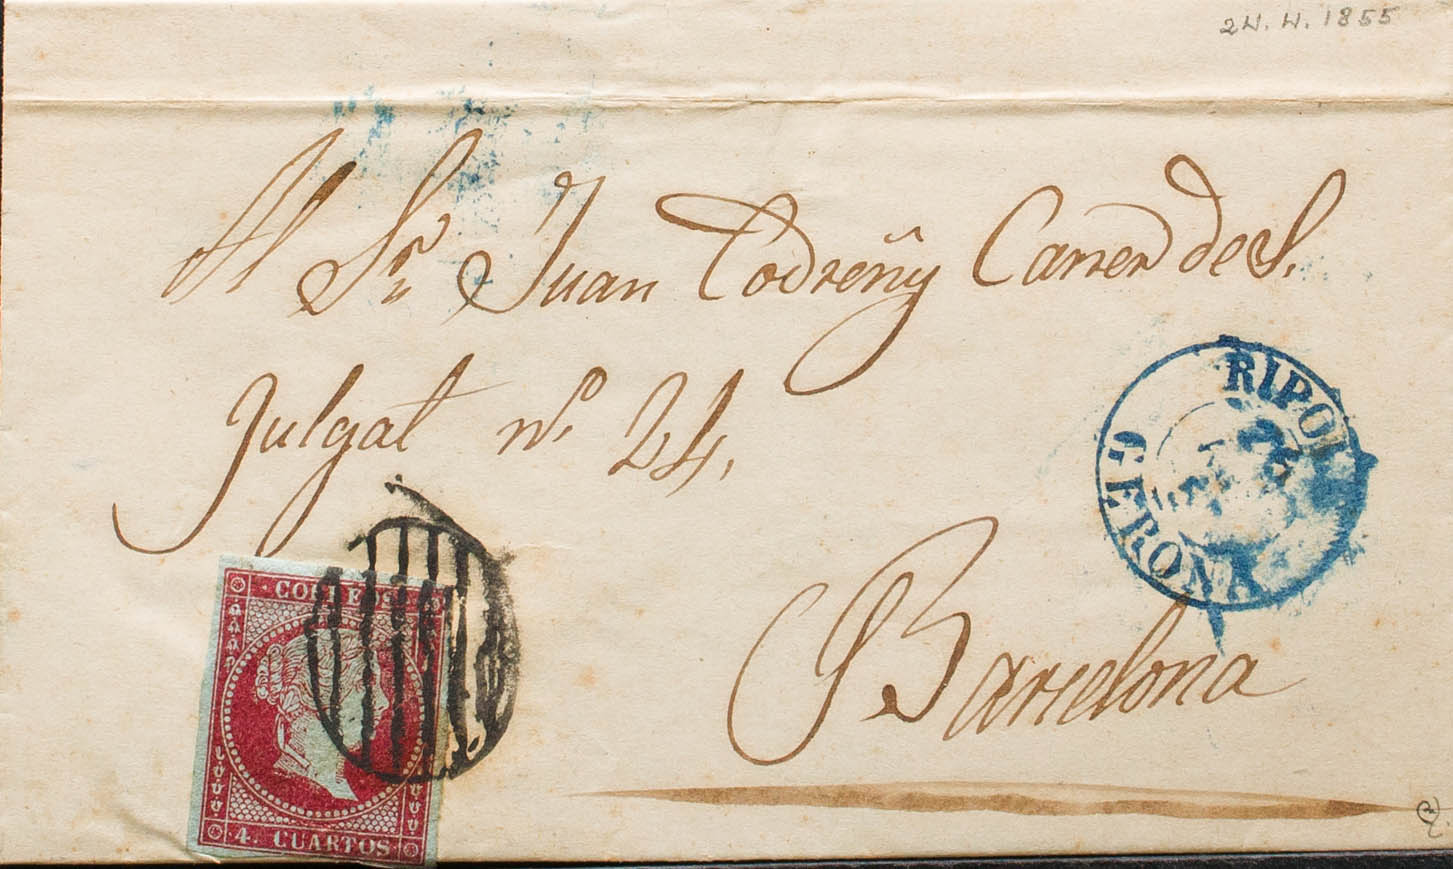 24.4.1855
Al Sr. Juan Codreñy Carrer de S.
Julgat nº 24,
Barcelona
RIPOLL
GERONA
CORREOS
4. CUARTOS